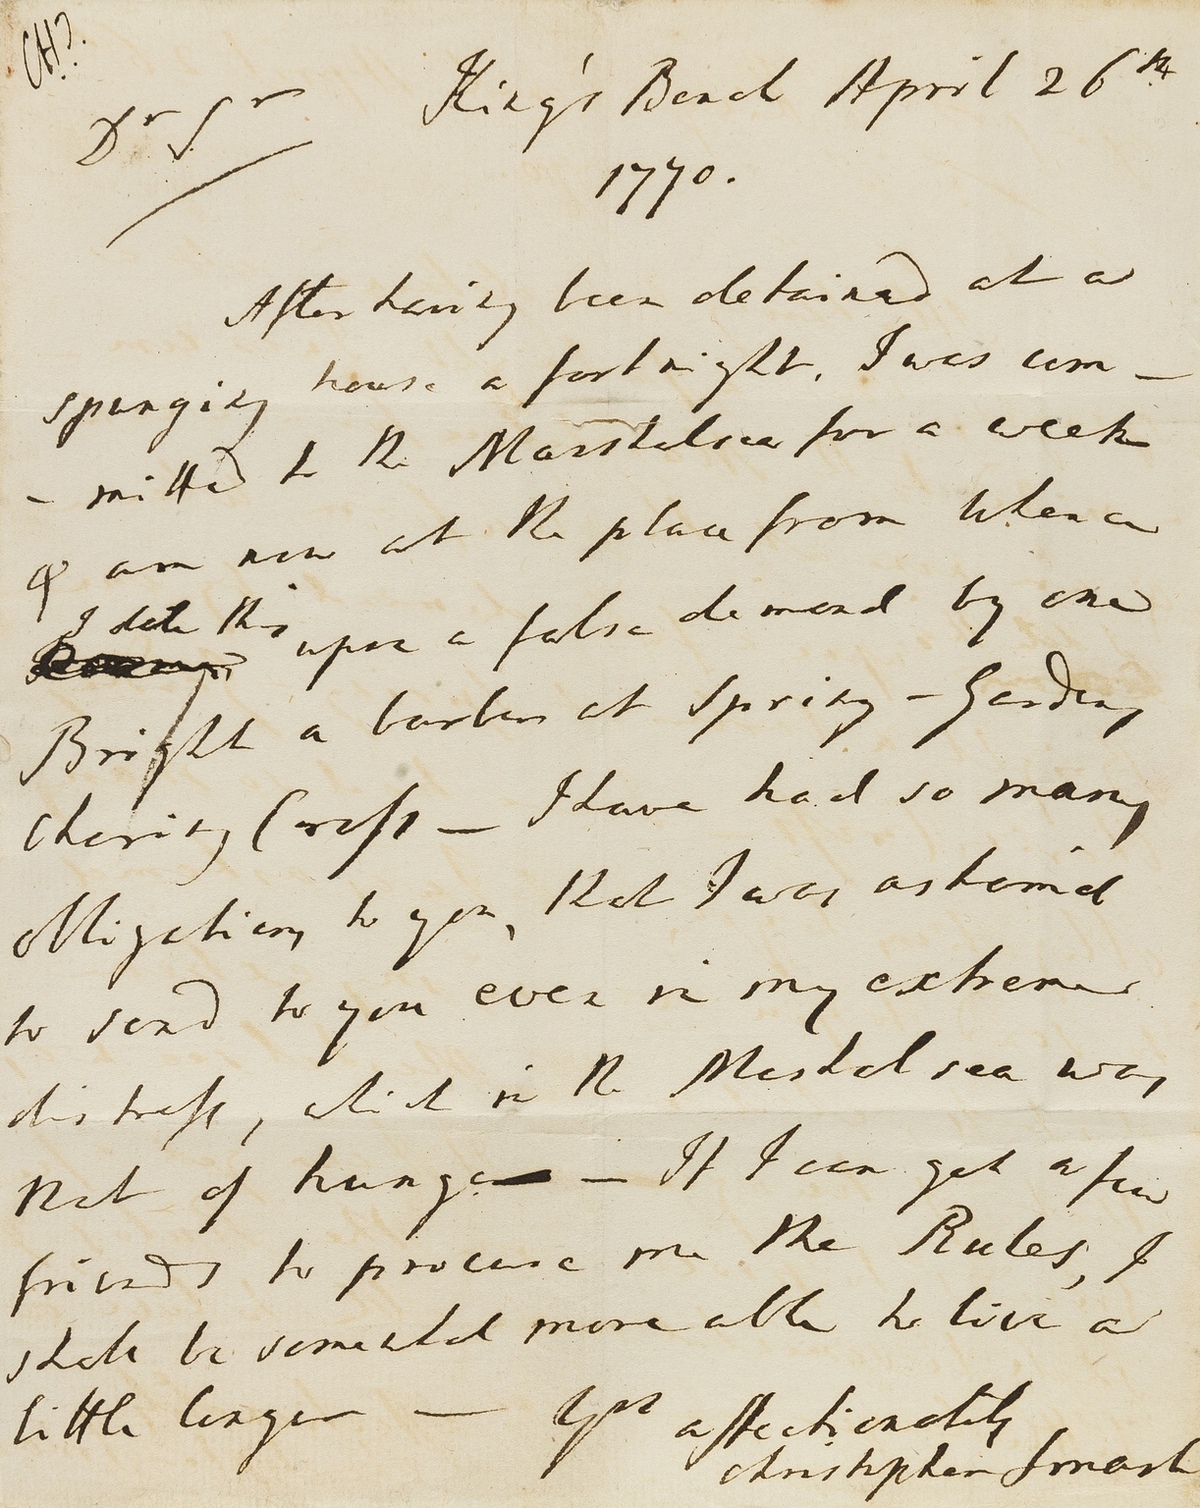 King's Bench April 26th
Dr Sr
1770.
After having been detained at a
spunging house a fortnight, I was com –
– mitted to the Marshalsea for a week
& am now at the place from whence
I date this upon a false demand by one
Bright a barber at Spring – Gardens
Charing Cross — I have had so many
obligations to you, that I was asham'd
to send to you even in my extreme
distress, which in the Marshalsea was
that of hunger — If I can get a few
friends to procure me the Rules, I
shall be somewhat more able to live a
little longer — Yrs affectionately
Christopher Smart